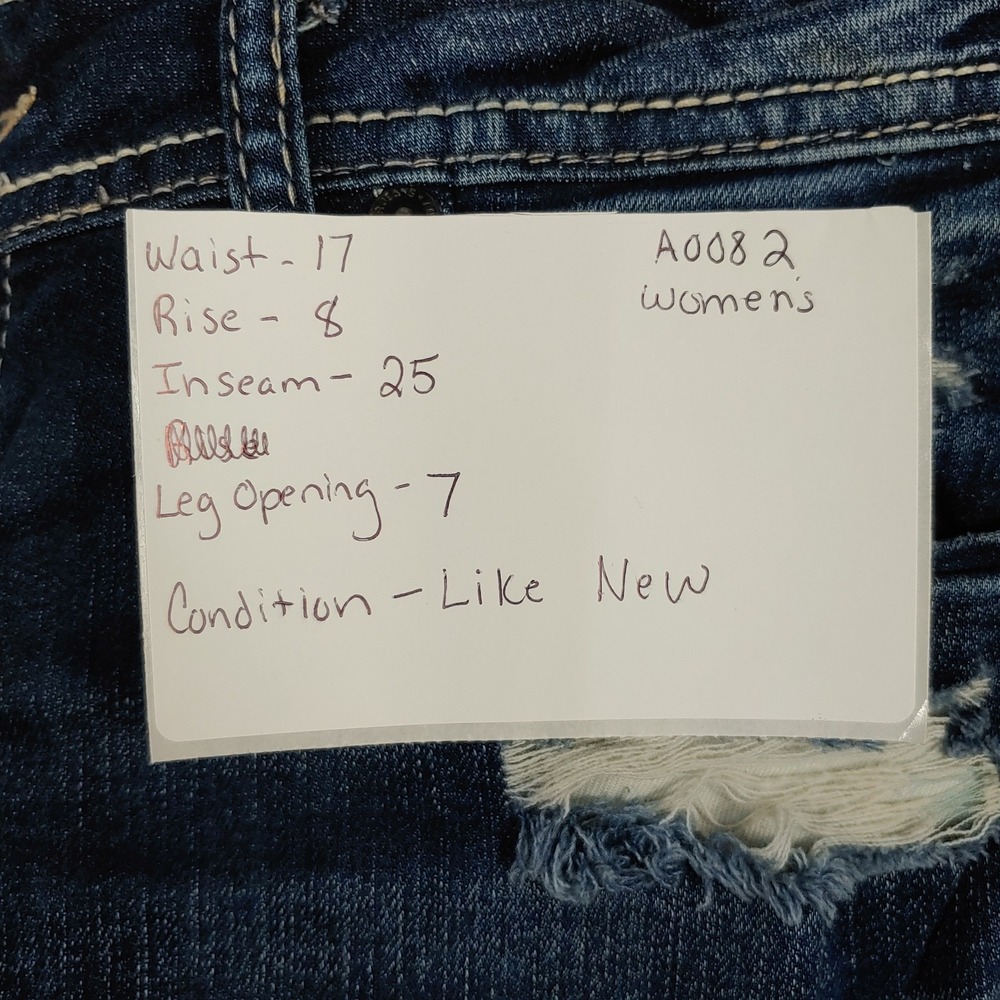 Waist - 17
Rise - 8
Inseam - 25
Leg Opening - 7
Condition - Like New
A0082
Women's